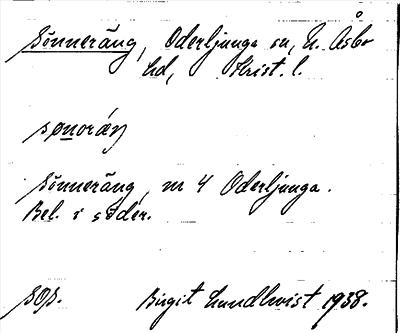 Sönneräng, Oderljunga sn, N. Åsbo
hd, Krist. l.
sønoräŋ
Sönneräng, nr 4 Oderljunga.
Bel. i söder.
sop.
Birgit Lundkvist 1938.